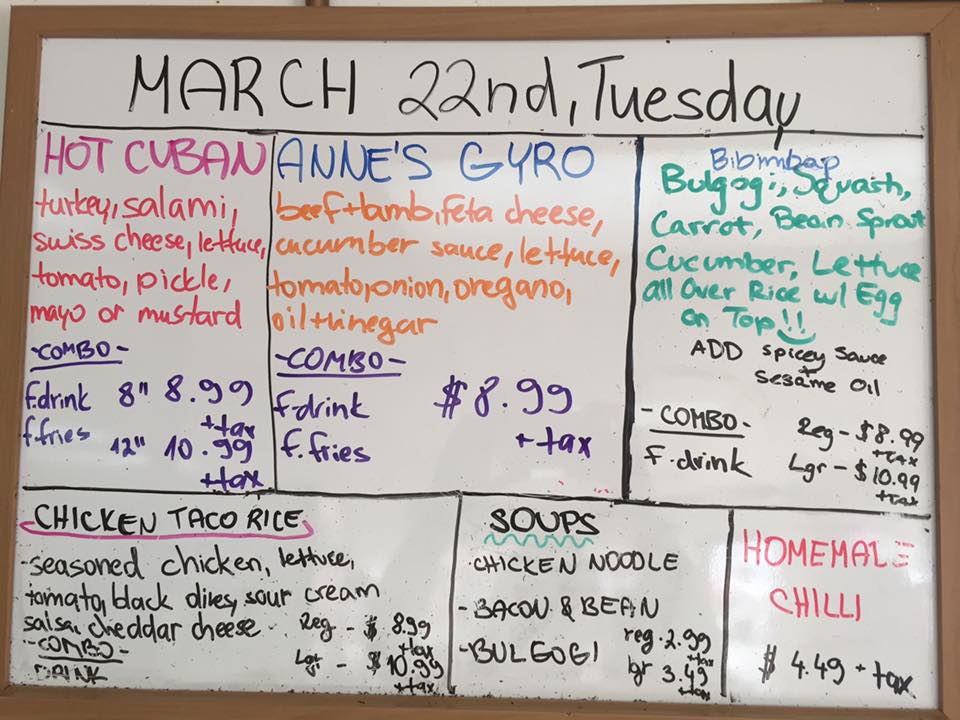 MARCH 22nd, Tuesday
HOT CUBAN
turkey, salami,
swiss cheese, lettuce,
tomato, pickle,
mayo or mustard
-COMBO-
f.drink 8" 8.99
+tax
f.fries 12" 10.99
+tax
ANNE'S GYRO
beef+lamb, feta cheese,
cucumber sauce, lettuce,
tomato, onion, oregano,
oil+vinegar
-COMBO-
f.drink $8.99
f.fries +tax
Bibimbap
Bulgogi, Squash,
Carrot, Bean Sprout
Cucumber, Lettuce
all Over Rice w/ Egg
on Top!!
ADD spicey sauce
+
sesame oil
-COMBO- Reg - $8.99
+tax
f.drink Lgr - $10.99
+tax
CHICKEN TACO RICE
-seasoned chicken, lettuce,
tomato, black olives, sour cream
salsa, cheddar cheese
Reg - $ 8.99
+tax
-COMBO-
Lgr - $ 10.99
+tax
DRINK
SOUPS
-CHICKEN NOODLE
-BACON & BEAN
-BULGOGI
reg. 2.99
+tax
lgr 3.49
+tax
HOMEMADE
CHILLI
$ 4.49 + tax